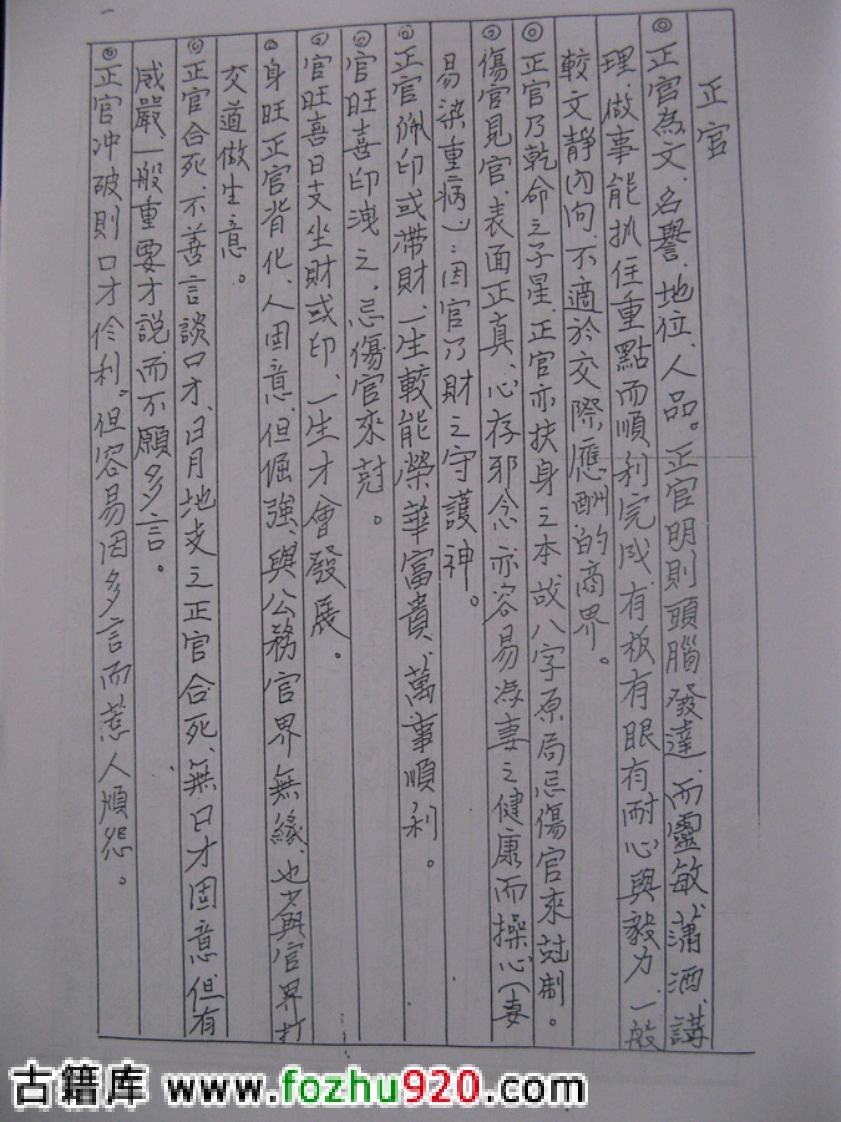 正官
◎正官為文、名譽、地位、人品。正官明則頭腦發達、而靈敏瀟洒、講
理、做事能抓住重點而順利完成、有板有眼有耐心與毅力、一般
較文靜內向、不適於交際應酬的商界。
◎正官乃乾命之子星、正官亦扶身之本、故八字原局忌傷官來尅制。
◎傷官見官、表面正真、心存邪念、亦容易為妻之健康而操心(妻
易染重病)::因官乃財之守護神。
◎正官佩印或帶財、一生較能榮華富貴、萬事順利。
◎官旺喜印洩之、忌傷官來尅。
◎官旺喜日支坐財或印、一生才會發展。
◎身旺正官背化、人固意、但倔強、與公務官界無緣、也少與官界打
交道做生意。
◎正官合死、不善言談口才、日月地支之正官合死、無口才固意、但有
威嚴、一般重要才說、而不願多言。
◎正官冲破則口才伶利、但容易因多言而惹人煩怨。
古籍库 www.fozhu920.com